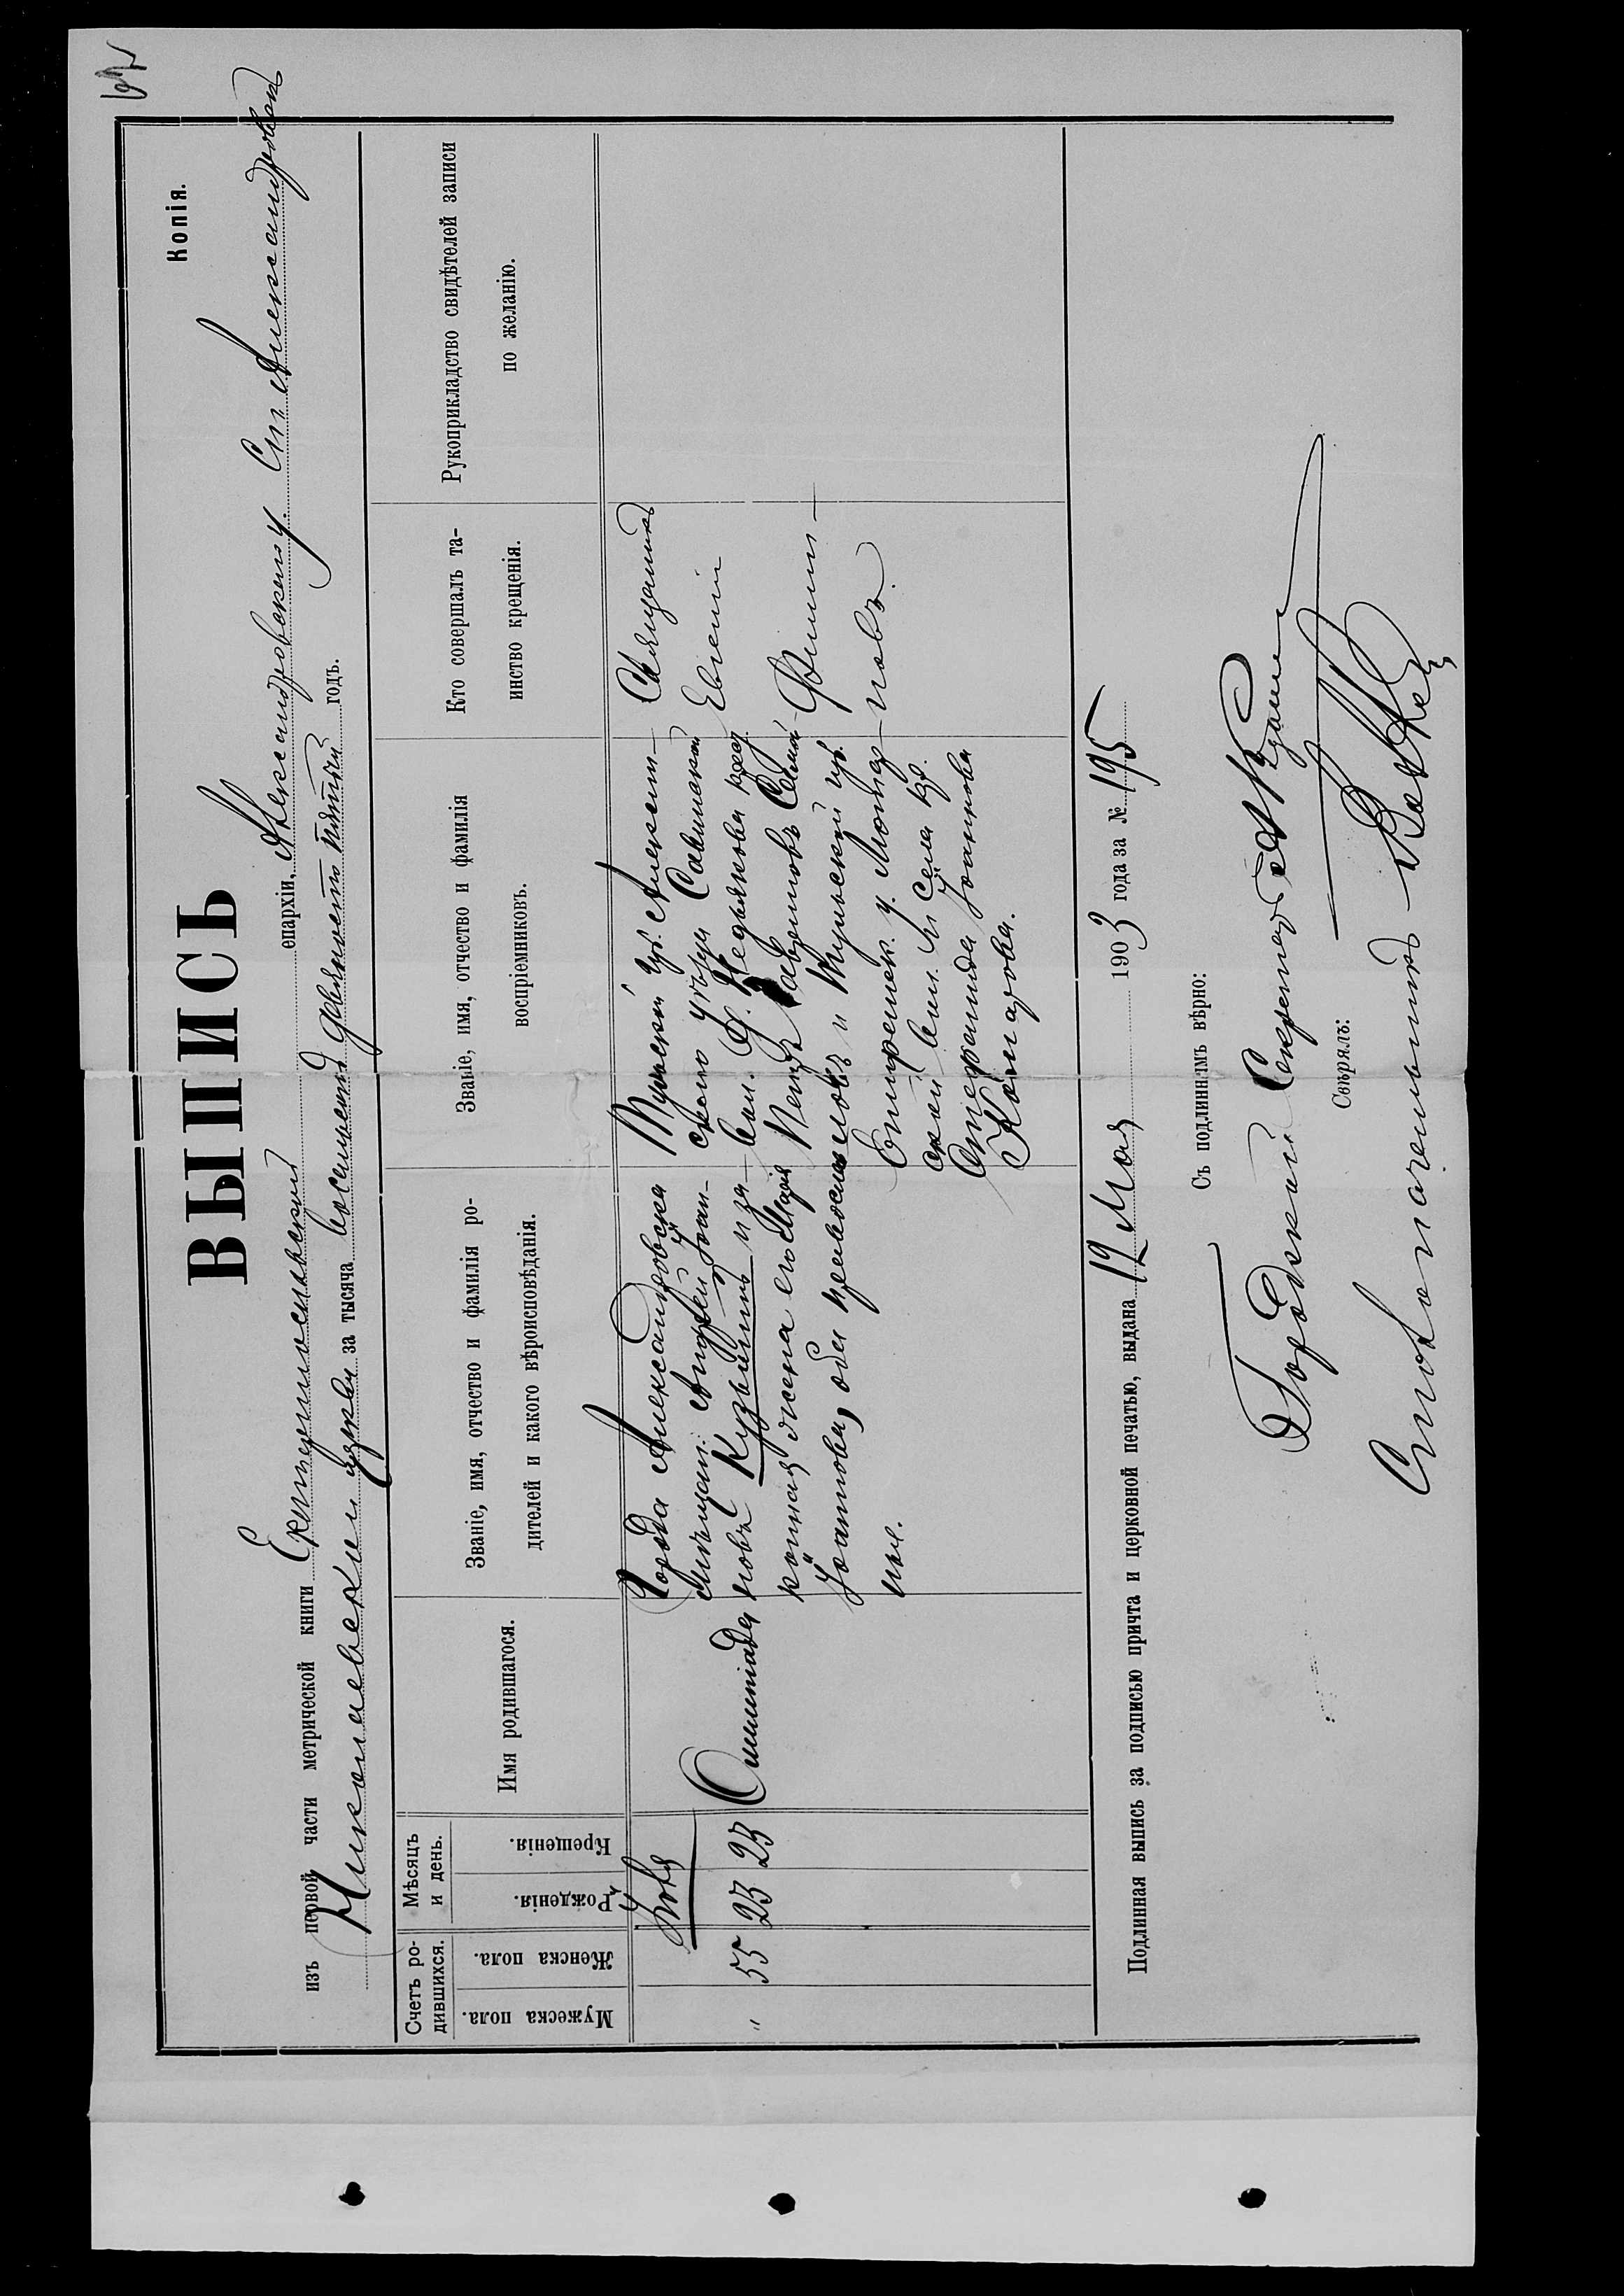 Копія.
ВЫПИСЬ
изъ первой части метрической книги Екатеринославской епархіи, Александровскаго у. Ст. Александровскъ
Николаевской церкви за тысяча восемьсотъ девяносто пятый годъ.
Счетъ родившихся.
Мужеска пола.
Женска пола.
Мѣсяцъ и день.
Рожденія.
Крещенія.
Имя родившагося.
Званіе, имя, отчество и фамилія ро-
дителей и какого вѣроисповѣданія.
Званіе, имя, отчество и фамилія
воспріемниковъ.
Кто совершалъ та-
инство крещенія.
Рукоприкладство свидѣтелей записи
по желанію.
Іюля
" 55 23 23
Олимпіада
Города Александровска
мѣщан. Андрей Іоан-
новъ Кузьминъ и за-
конная жена его Марія
Іоаннова, оба православ-
ные.
Тульской губ. Алексин-
скаго уѣзда Савинской
вол. д. Недьякова крест.
Петръ Савельевъ
и Тульской губ.
Епифанск. у.
вол. Села кр.
Степанида Іоаннова
Комарова.
Священникъ
Евгеній
Филип-
повъ.
Подлинная выпись за подписью причта и церковной печатью, выдана 12 Мая 1903 года за № 195
Съ подлиннымъ вѣрно:
Городской Секретарь
Свѣрялъ:
Столоначальникъ